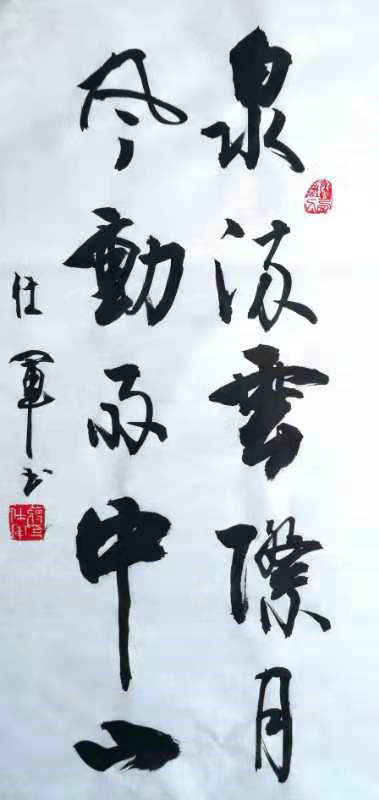 泉流雲際月
风動雨中山
任軍书